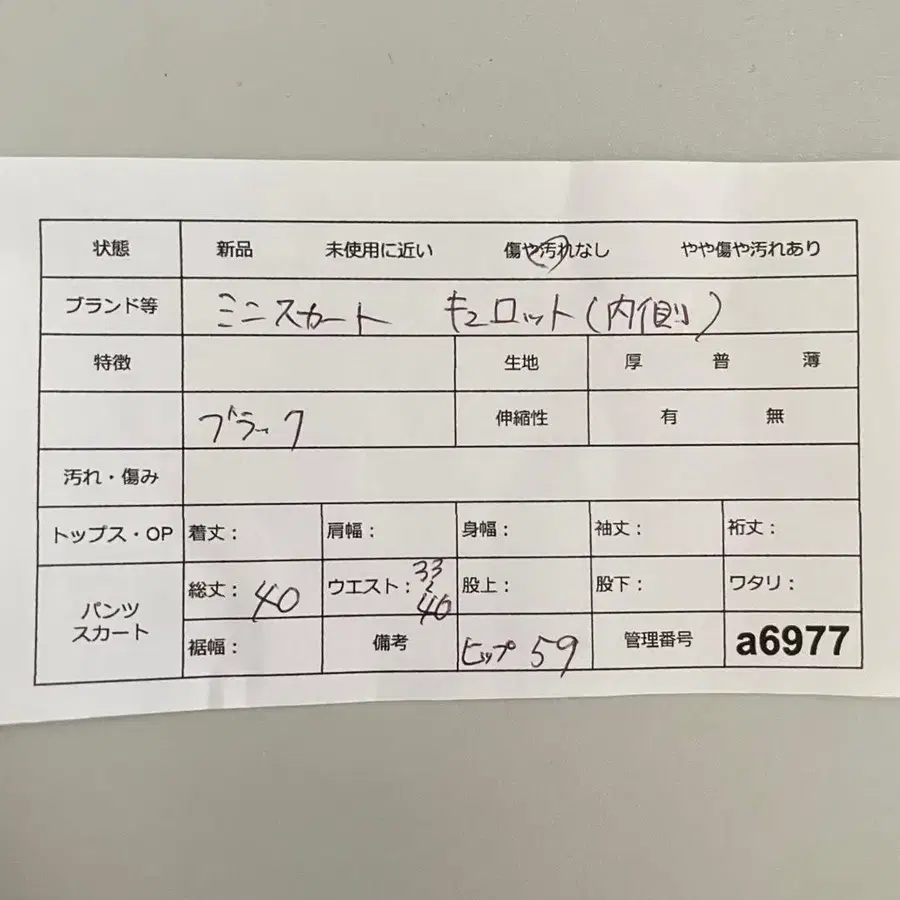 状態 新品 未使用に近い 傷や汚れなし やや傷や汚れあり
ブランド等 ミニスカート キュロット(内側)
特徴 生地 厚 普 薄
ブラック 伸縮性 有 無
汚れ・傷み
トップス・OP 着丈: 肩幅: 身幅: 袖丈: 裄丈:
パンツ スカート 総丈: 40 ウエスト: 33 〜 40 股上: 股下: ワタリ:
裾幅: 備考 ヒップ 59 管理番号 a6977